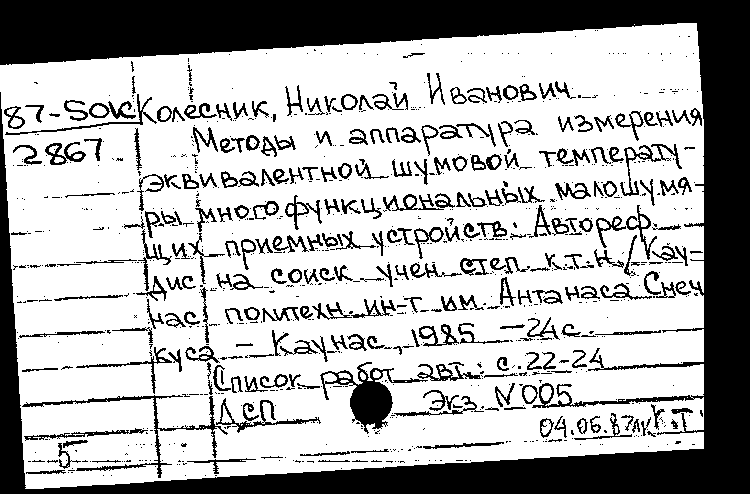 87-SOK Колесник, Николай Иванович.
2867 Методы и аппаратура измерения
эквивалентной шумовой температу-
ры многофункциональных малошумя-
щих приемных устройств: Автореф.
дис. на соиск. учен. степ. к.т.н. / Кау-
нас. политехн. ин-т им. Антанаса Снеч
куса — Каунас, 1985 —24с.
Список работ авт.: с.22-24
ДСП Экз. N005
04.06.87 К.Т.
5